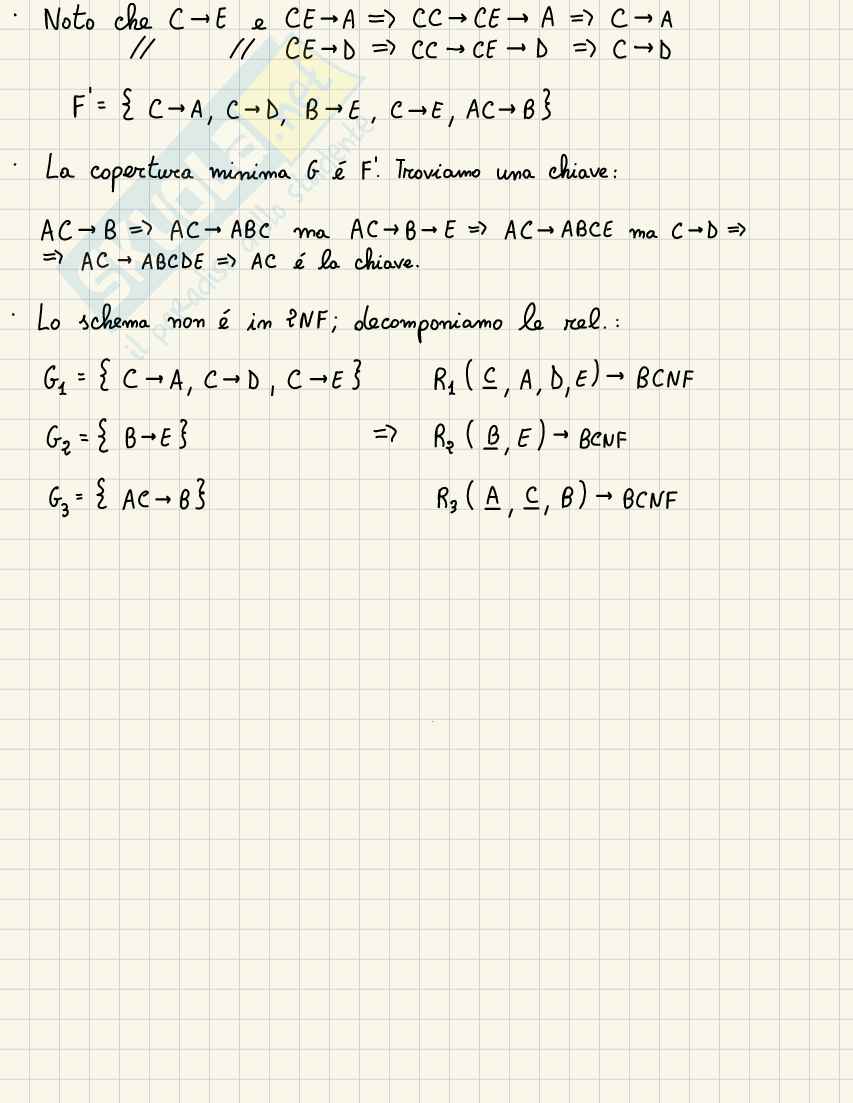 · Noto che C → E e CE → A => CC → CE → A => C → A
// // CE → D => CC → CE → D => C → D
F' = { C → A, C → D, B → E, C → E, AC → B }
· La copertura minima G é F'. Troviamo una chiave:
AC → B => AC → ABC ma AC → B → E => AC → ABCE ma C → D =>
=> AC → ABCDE => AC é la chiave.
· Lo schema non é in 2NF; decomponiamo le rel.:
G₁ = { C → A, C → D, C → E } R₁ ( C, A, D, E ) → BCNF
G₂ = { B → E } => R₂ ( B, E ) → BCNF
G₃ = { AC → B } R₃ ( A, C, B ) → BCNF
SKUOLA.net
il paradiso dello studente